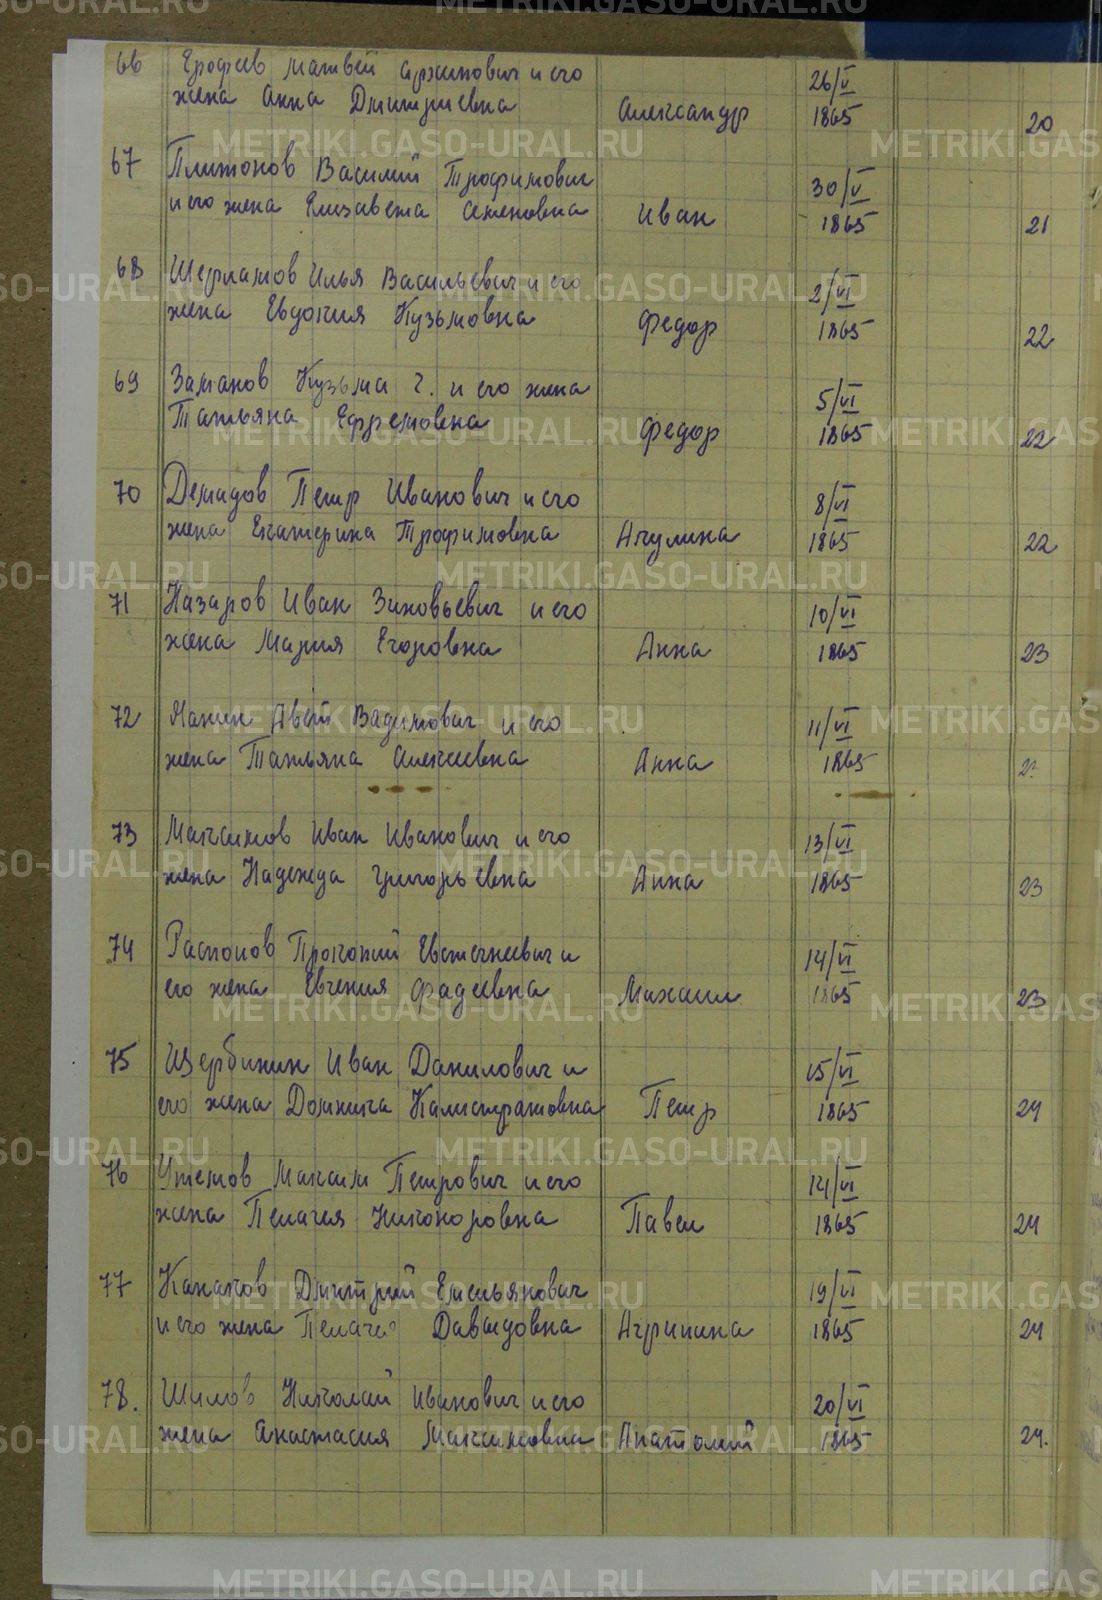 66 Ерофеев Матвей Архипович и его 26/VI
жена Анна Дмитриевна Александр 1865 20
67 Плотонов Василий Трофимович 30/V
и его жена Елизавета Семеновна Иван 1865 21
68 Шерламов Илья Васильевич и его 2/VI
жена Евдокия Кузьмовна Федор 1865 22
69 Заманов Кузьма Г. и его жена 5/VI
Татьяна Ефремовна Федор 1865 22
70 Демидов Петр Иванович и его 8/VI
жена Екатерина Трофимовна Акулина 1865 22
71 Назаров Иван Зиновьевич и его 10/VI
жена Мария Егоровна Анна 1865 23
72 Манин и его 11/VI
жена Татьяна Алексеевна Анна 1865
73 Максимов Иван Иванович и его 13/VI
жена Надежда Григорьевна Анна 1865 23
74 Распопов Прокопий Евстигнеевич и 14/VI
его жена Евгения Фадеевна Михаил 1865 23
75 Щербинин Иван Данилович и 15/VI
его жена Домника Калистратовна Петр 1865 24
76 Утемов Максим Петрович и его 14/VI
жена Пелагея Никоноровна Павел 1865 24
77 Канаков Дмитрий Емельянович 19/VI
и его жена Пелагея Давыдовна Агрипина 1865 24
78. Шилов Николай Иванович и его 20/VI
жена Анастасия Максимовна Анатолий 1865 24.
METRIKI.GASO-URAL.RU